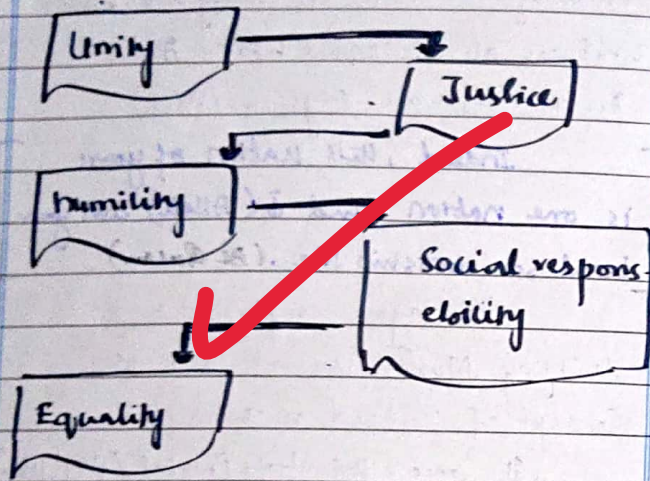 Unity
Justice
humility
Social respons-
ebility
Equality